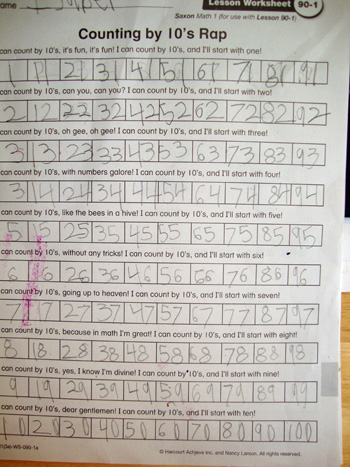 ame
Lesson Worksheet 90-1
Saxon Math 1 (for use with Lesson 90-1)
Counting by 10's Rap
can count by 10's, it's fun, it's fun! I can count by 10's, and I'll start with one!
1 11 21 31 41 51 61 71 81 91
can count by 10's, can you, can you? I can count by 10's, and I'll start with two!
2 12 22 32 42 52 62 72 82 92
can count by 10's, oh gee, oh gee! I can count by 10's, and I'll start with three!
3 13 23 33 43 53 63 73 83 93
can count by 10's, with numbers galore! I can count by 10's, and I'll start with four!
3 14 24 34 44 54 64 74 84 94
can count by 10's, like the bees in a hive! I can count by 10's, and I'll start with five!
5 15 25 35 45 55 65 75 85 95
can count by 10's, without any tricks! I can count by 10's, and I'll start with six!
6 16 26 36 46 56 66 76 86 96
can count by 10's, going up to heaven! I can count by 10's, and I'll start with seven!
7 17 27 37 47 57 67 77 87 97
can count by 10's, because in math I'm great! I can count by 10's, and I'll start with eight!
8 18 28 38 48 58 68 78 88 98
can count by 10's, yes, I know I'm divine! I can count by 10's, and I'll start with nine!
9 19 29 39 49 59 69 79 89 99
can count by 10's, dear gentlemen! I can count by 10's, and I'll start with ten!
10 20 30 40 50 60 70 80 90 100
© Harcourt Achieve Inc. and Nancy Larson. All rights reserved.